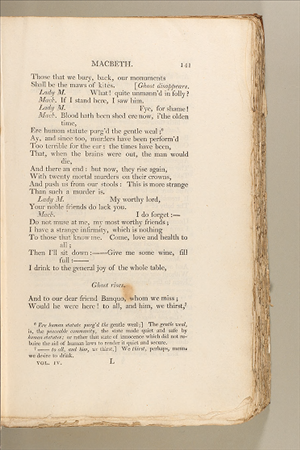 MACBETH. 141
Those that we bury, back, our monuments
Shall be the maws of kites. [Ghost disappears.
Lady M. What! quite unmann'd in folly?
Macb. If I stand here, I saw him.
Lady M. Fye, for shame!
Macb. Blood hath been shed ere now, i'the olden
time,
Ere human statute purg'd the gentle weal;⁶
Ay, and since too, murders have been perform'd
Too terrible for the ear: the times have been,
That, when the brains were out, the man would
die,
And there an end: but now, they rise again,
With twenty mortal murders on their crowns,
And push us from our stools: This is more strange
Than such a murder is.
Lady M. My worthy lord,
Your noble friends do lack you.
Macb. I do forget:—
Do not muse at me, my most worthy friends;
I have a strange infirmity, which is nothing
To those that know me. Come, love and health to
all;
Then I'll sit down:——Give me some wine, fill
full:——
I drink to the general joy of the whole table,
Ghost rises.
And to our dear friend Banquo, whom we miss;
Would he were here! to all, and him, we thirst,⁷
⁶ Ere human statute purg'd the gentle weal;] The gentle weal,
is, the peaceable community, the state made quiet and safe by
human statutes; or rather that state of innocence which did not re-
quire the aid of human laws to render it quiet and secure.
⁷ —— to all, and him, we thirst,] We thirst, perhaps, means
we desire to drink.
VOL. IV. L